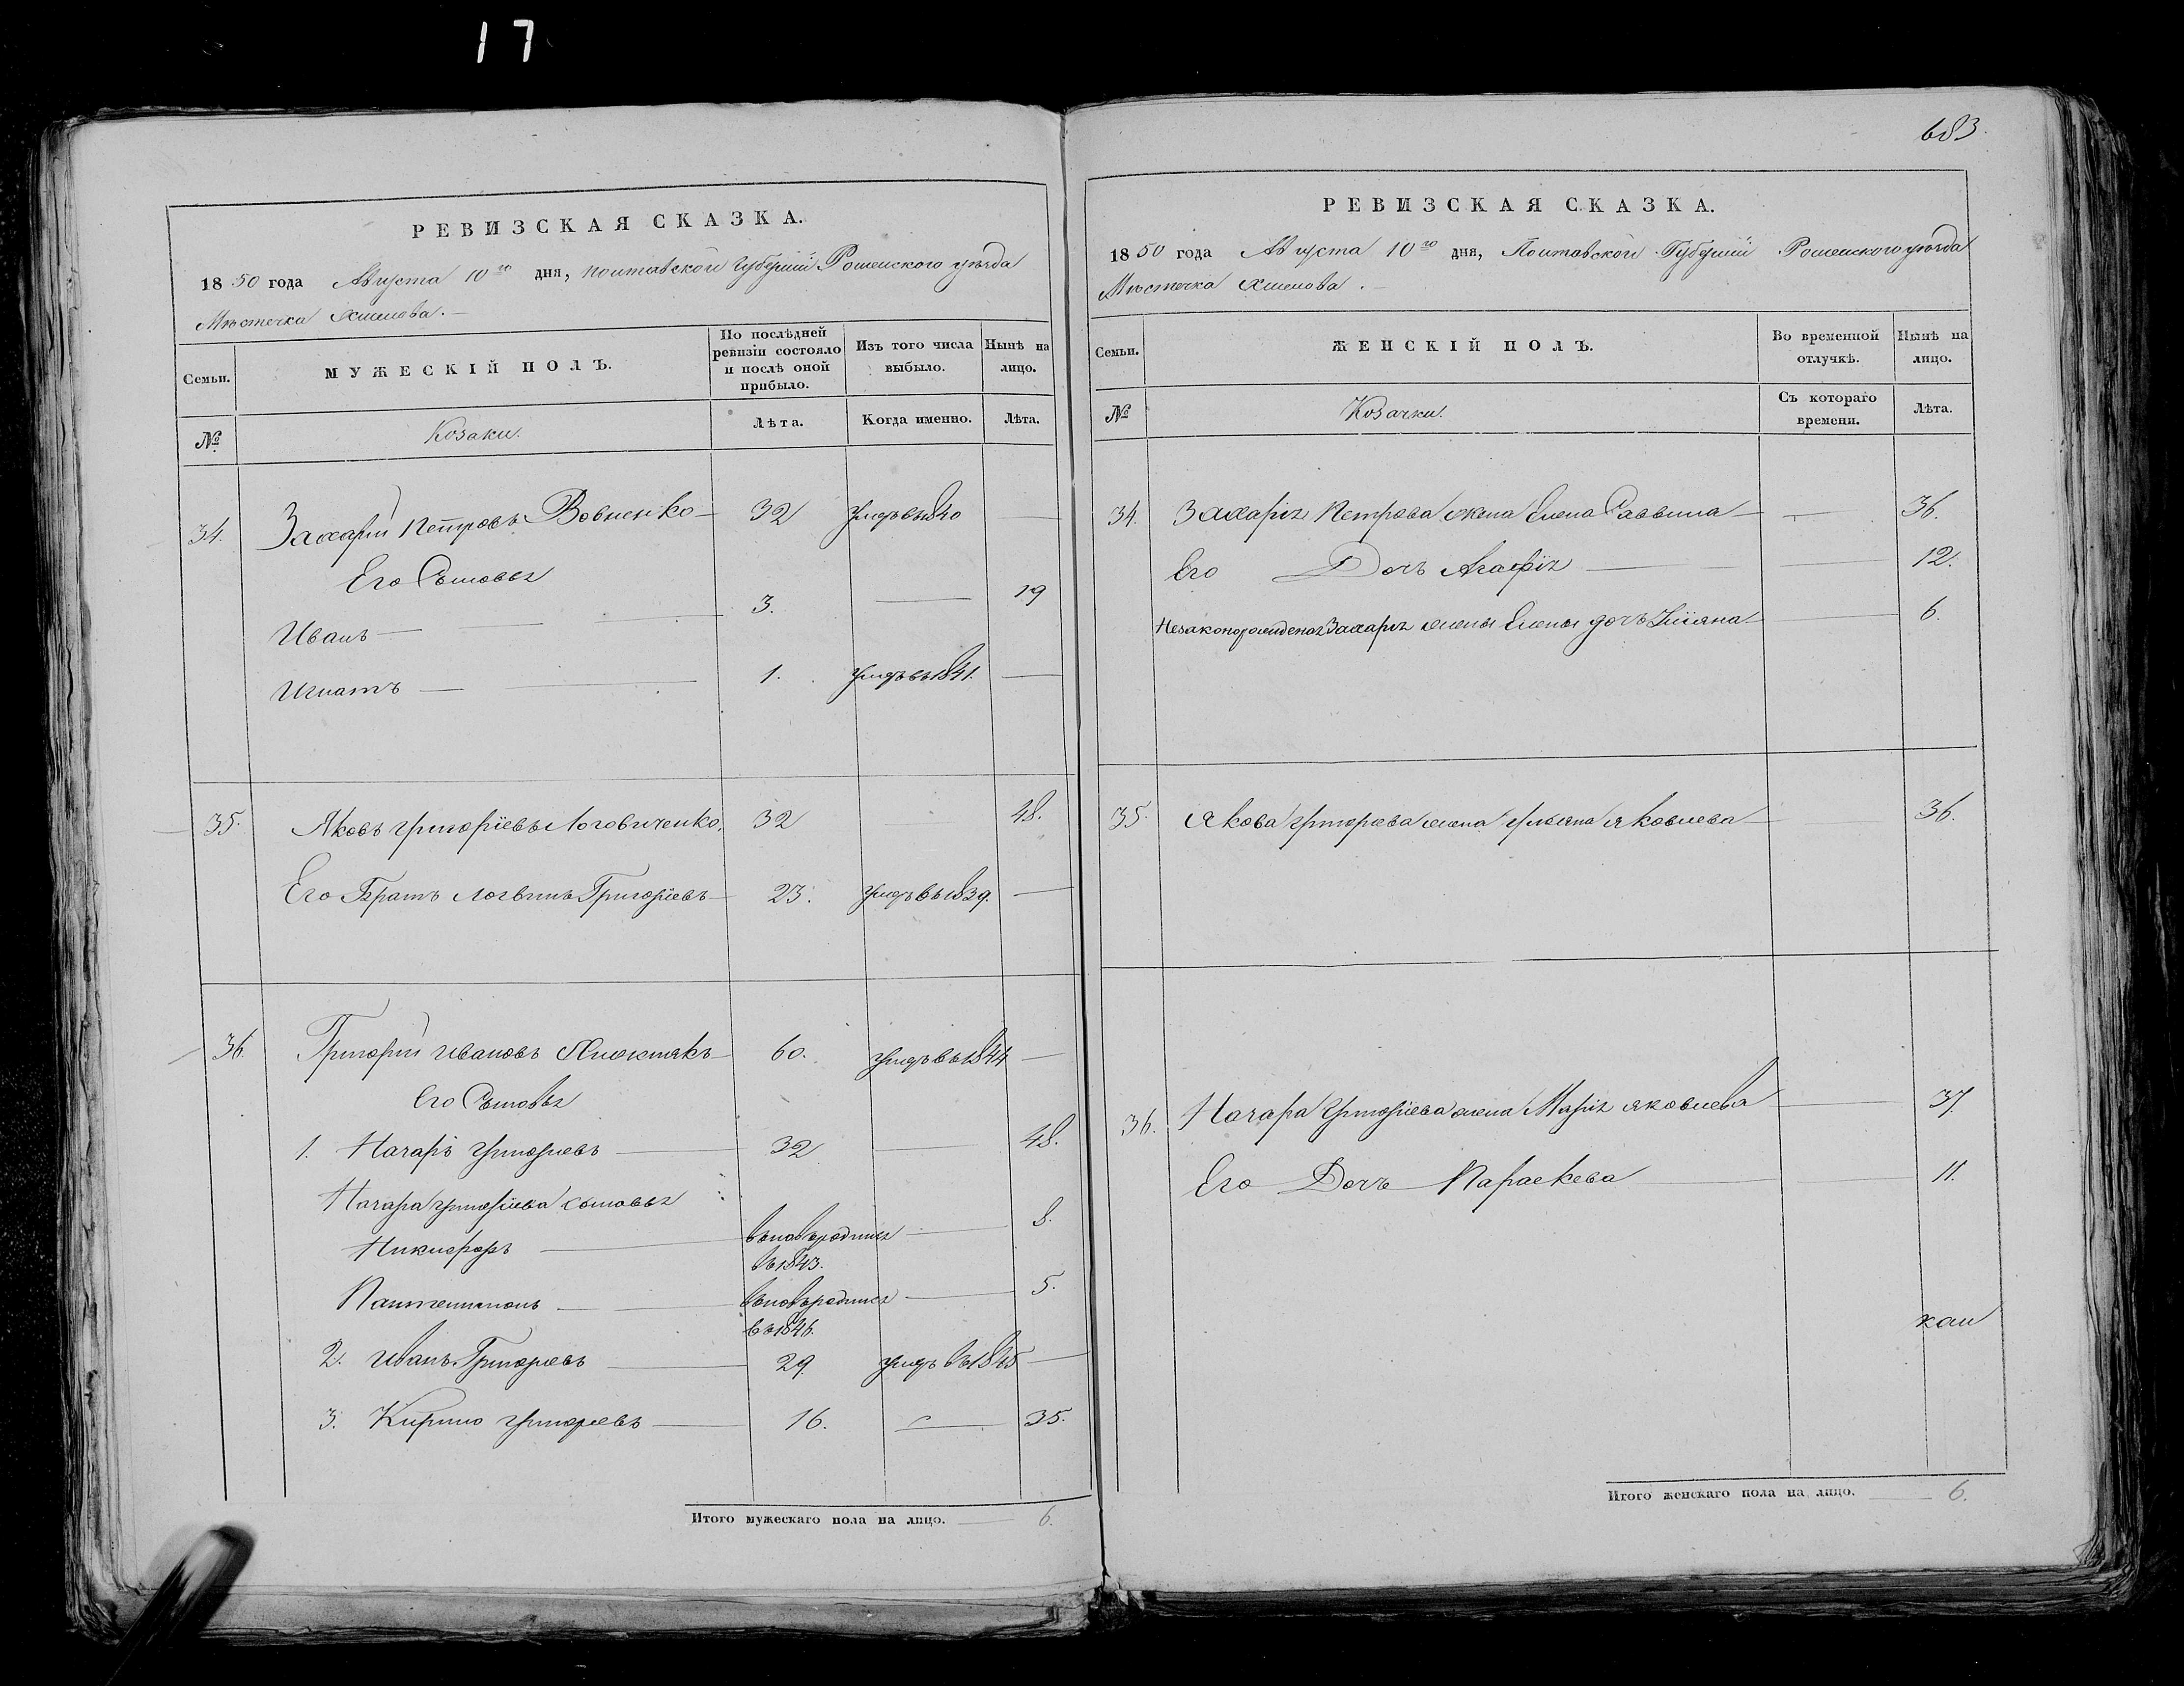 17
683.
РЕВИЗСКАЯ СКАЗКА.
1850 года Августа 10го дня, Полтавской Губерніи Роменского уѣзда
Мѣстечка Хмелова. —
Семьи.
МУЖЕСКІЙ ПОЛЪ.
По послѣдней ревизіи состояло и послѣ оной прибыло.
Изъ того числа выбыло.
Нынѣ на лицо.
№
Козаки.
Лѣта.
Когда именно.
Лѣта.
34. Захарій Петровъ Вовненко — 32 умеръ въ 1840 —
Его Сыновья
Иванъ — 3. — 19
Игнатъ — 1. умеръ въ 1841. —
35. Яковъ Григоріевъ Логовиченко, 32 48.
Его Братъ Логвинъ Григоріевъ — 23. умеръ въ 1839. —
36. Григорій Ивановъ — 60. умеръ въ 1844 —
Его Сыновья
1. Назаръ Григорьевъ — 32 — 48.
Назара Григоріева сыновья
Никифоръ — вновь родился — 8.
въ 1843.
Пантелимонъ — вновь родился — 5.
въ 1846.
2. Иванъ Григорьевъ — 29. умеръ въ 1845 —
3. Кирило Григорьевъ — 16. — 35.
Итого мужескаго пола на лицо. — 6.
РЕВИЗСКАЯ СКАЗКА.
1850 года Августа 10го дня, Полтавской Губерніи Роменского уѣзда
Мѣстечка Хмелова. —
Семьи.
ЖЕНСКІЙ ПОЛЪ.
Во временной отлучкѣ.
Нынѣ на лицо.
№
Козачки.
Съ котораго времени.
Лѣта.
34. Захарія Петрова жена Елена Саввина — — 36.
Его Дочь Агафія — 12.
Незаконорожденая Захарія жены Елены дочь Уліяна — 6.
35. Якова Григорьева жена Ульяна Яковлева — 36.
36. Назара Григоріева жена Марія Яковлева — 37.
Его Дочь Параскева — 11.
Итого женскаго пола на лицо. — 6.